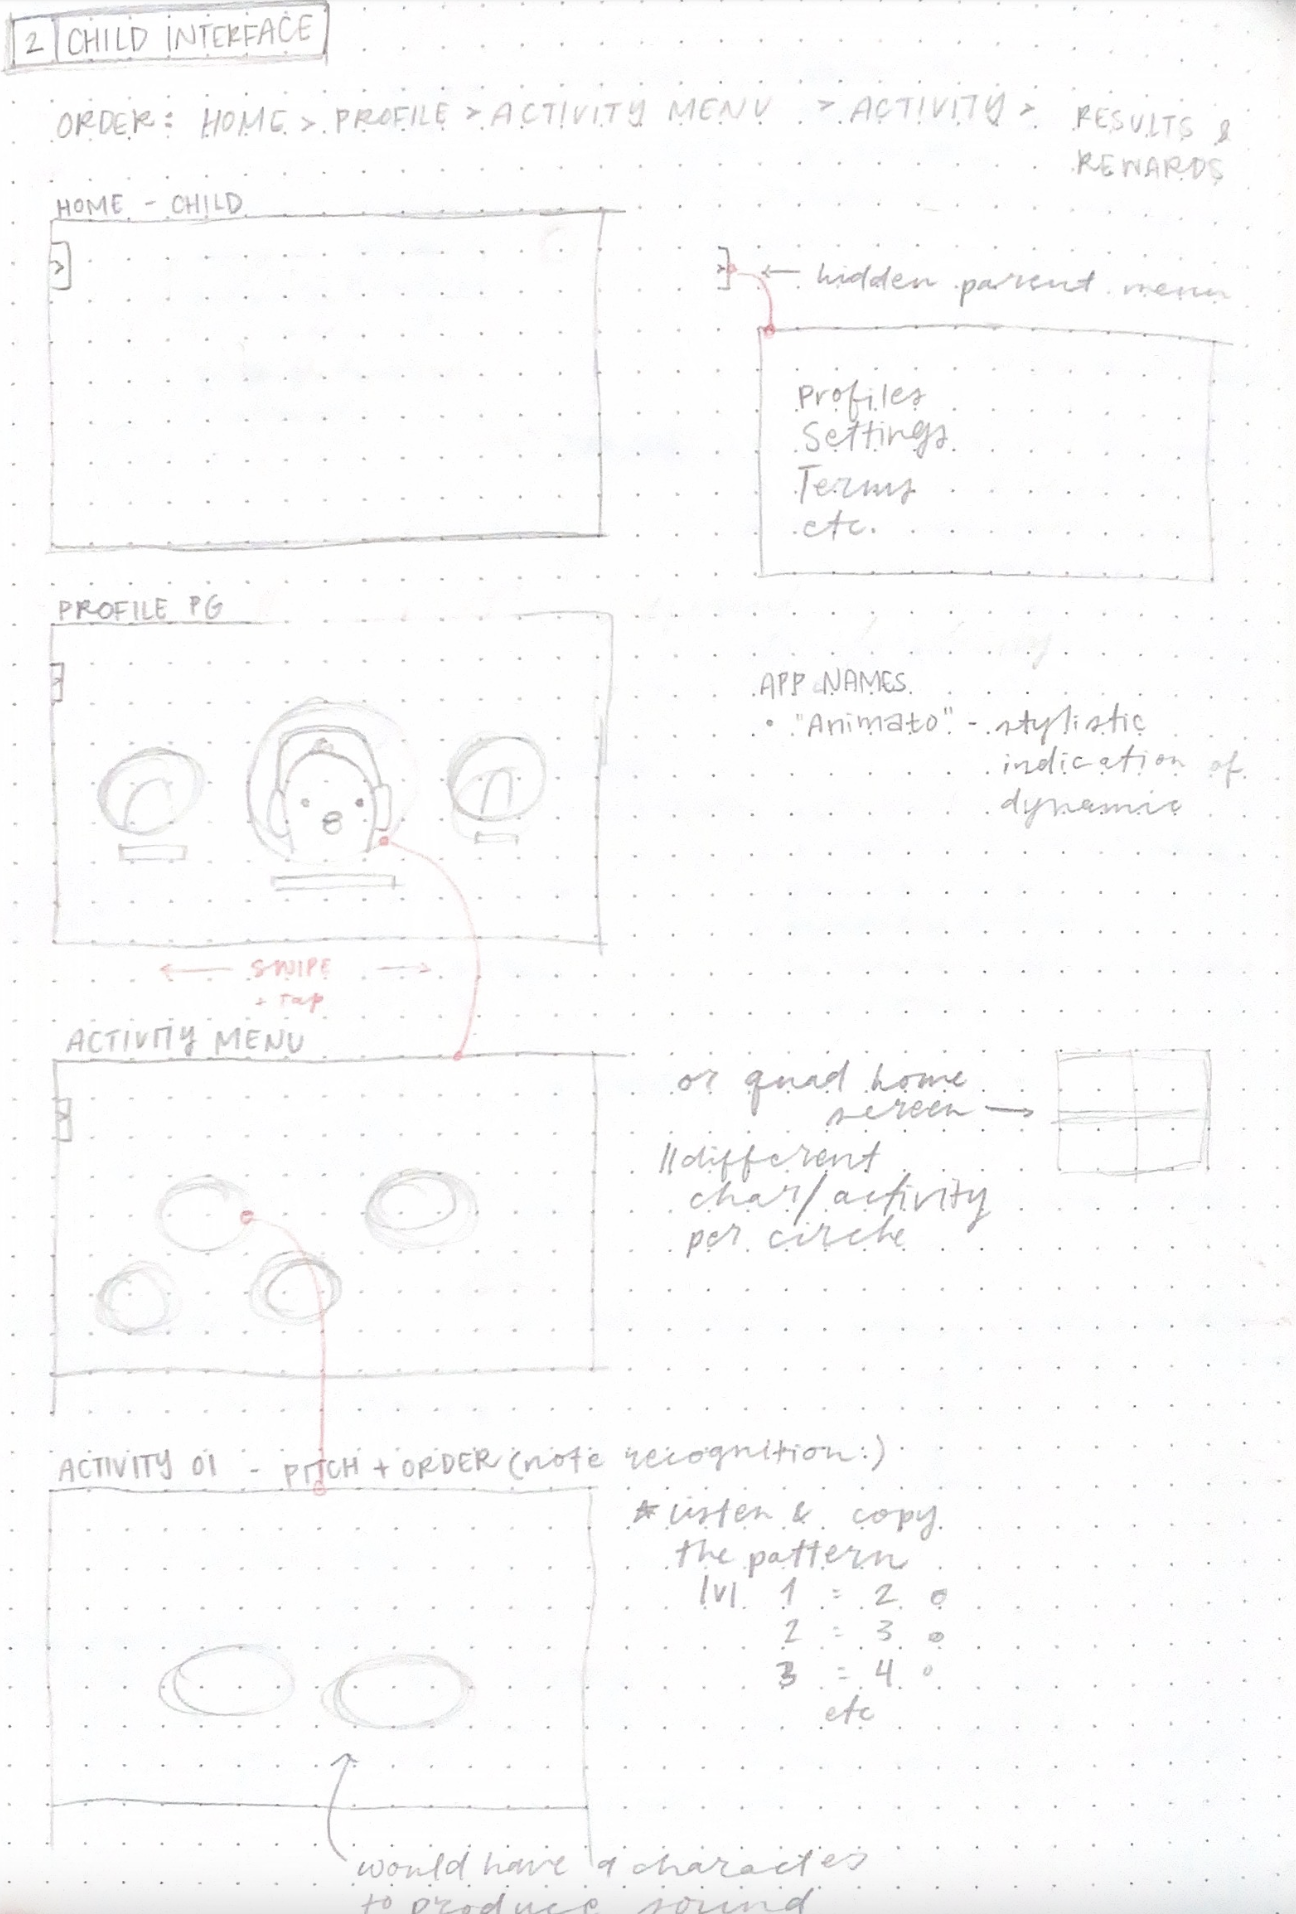 2 CHILD INTERFACE
ORDER: HOME > PROFILE > ACTIVITY MENU > ACTIVITY > RESULTS &
REWARDS
HOME - CHILD
> ← hidden parent menu
Profiles
Settings
Terms
etc.
PROFILE PG
APP NAMES
• "Animato" - stylistic
indication of
dynamic
← SWIPE →
+ Tap
ACTIVITY MENU
or quad home
screen →
// different
char/activity
per circle
ACTIVITY 01 - PITCH + ORDER (note recognition:)
* listen & copy
the pattern
lvl 1 = 2 o
2 = 3 o
3 = 4 o
etc
would have a character
to produce sound